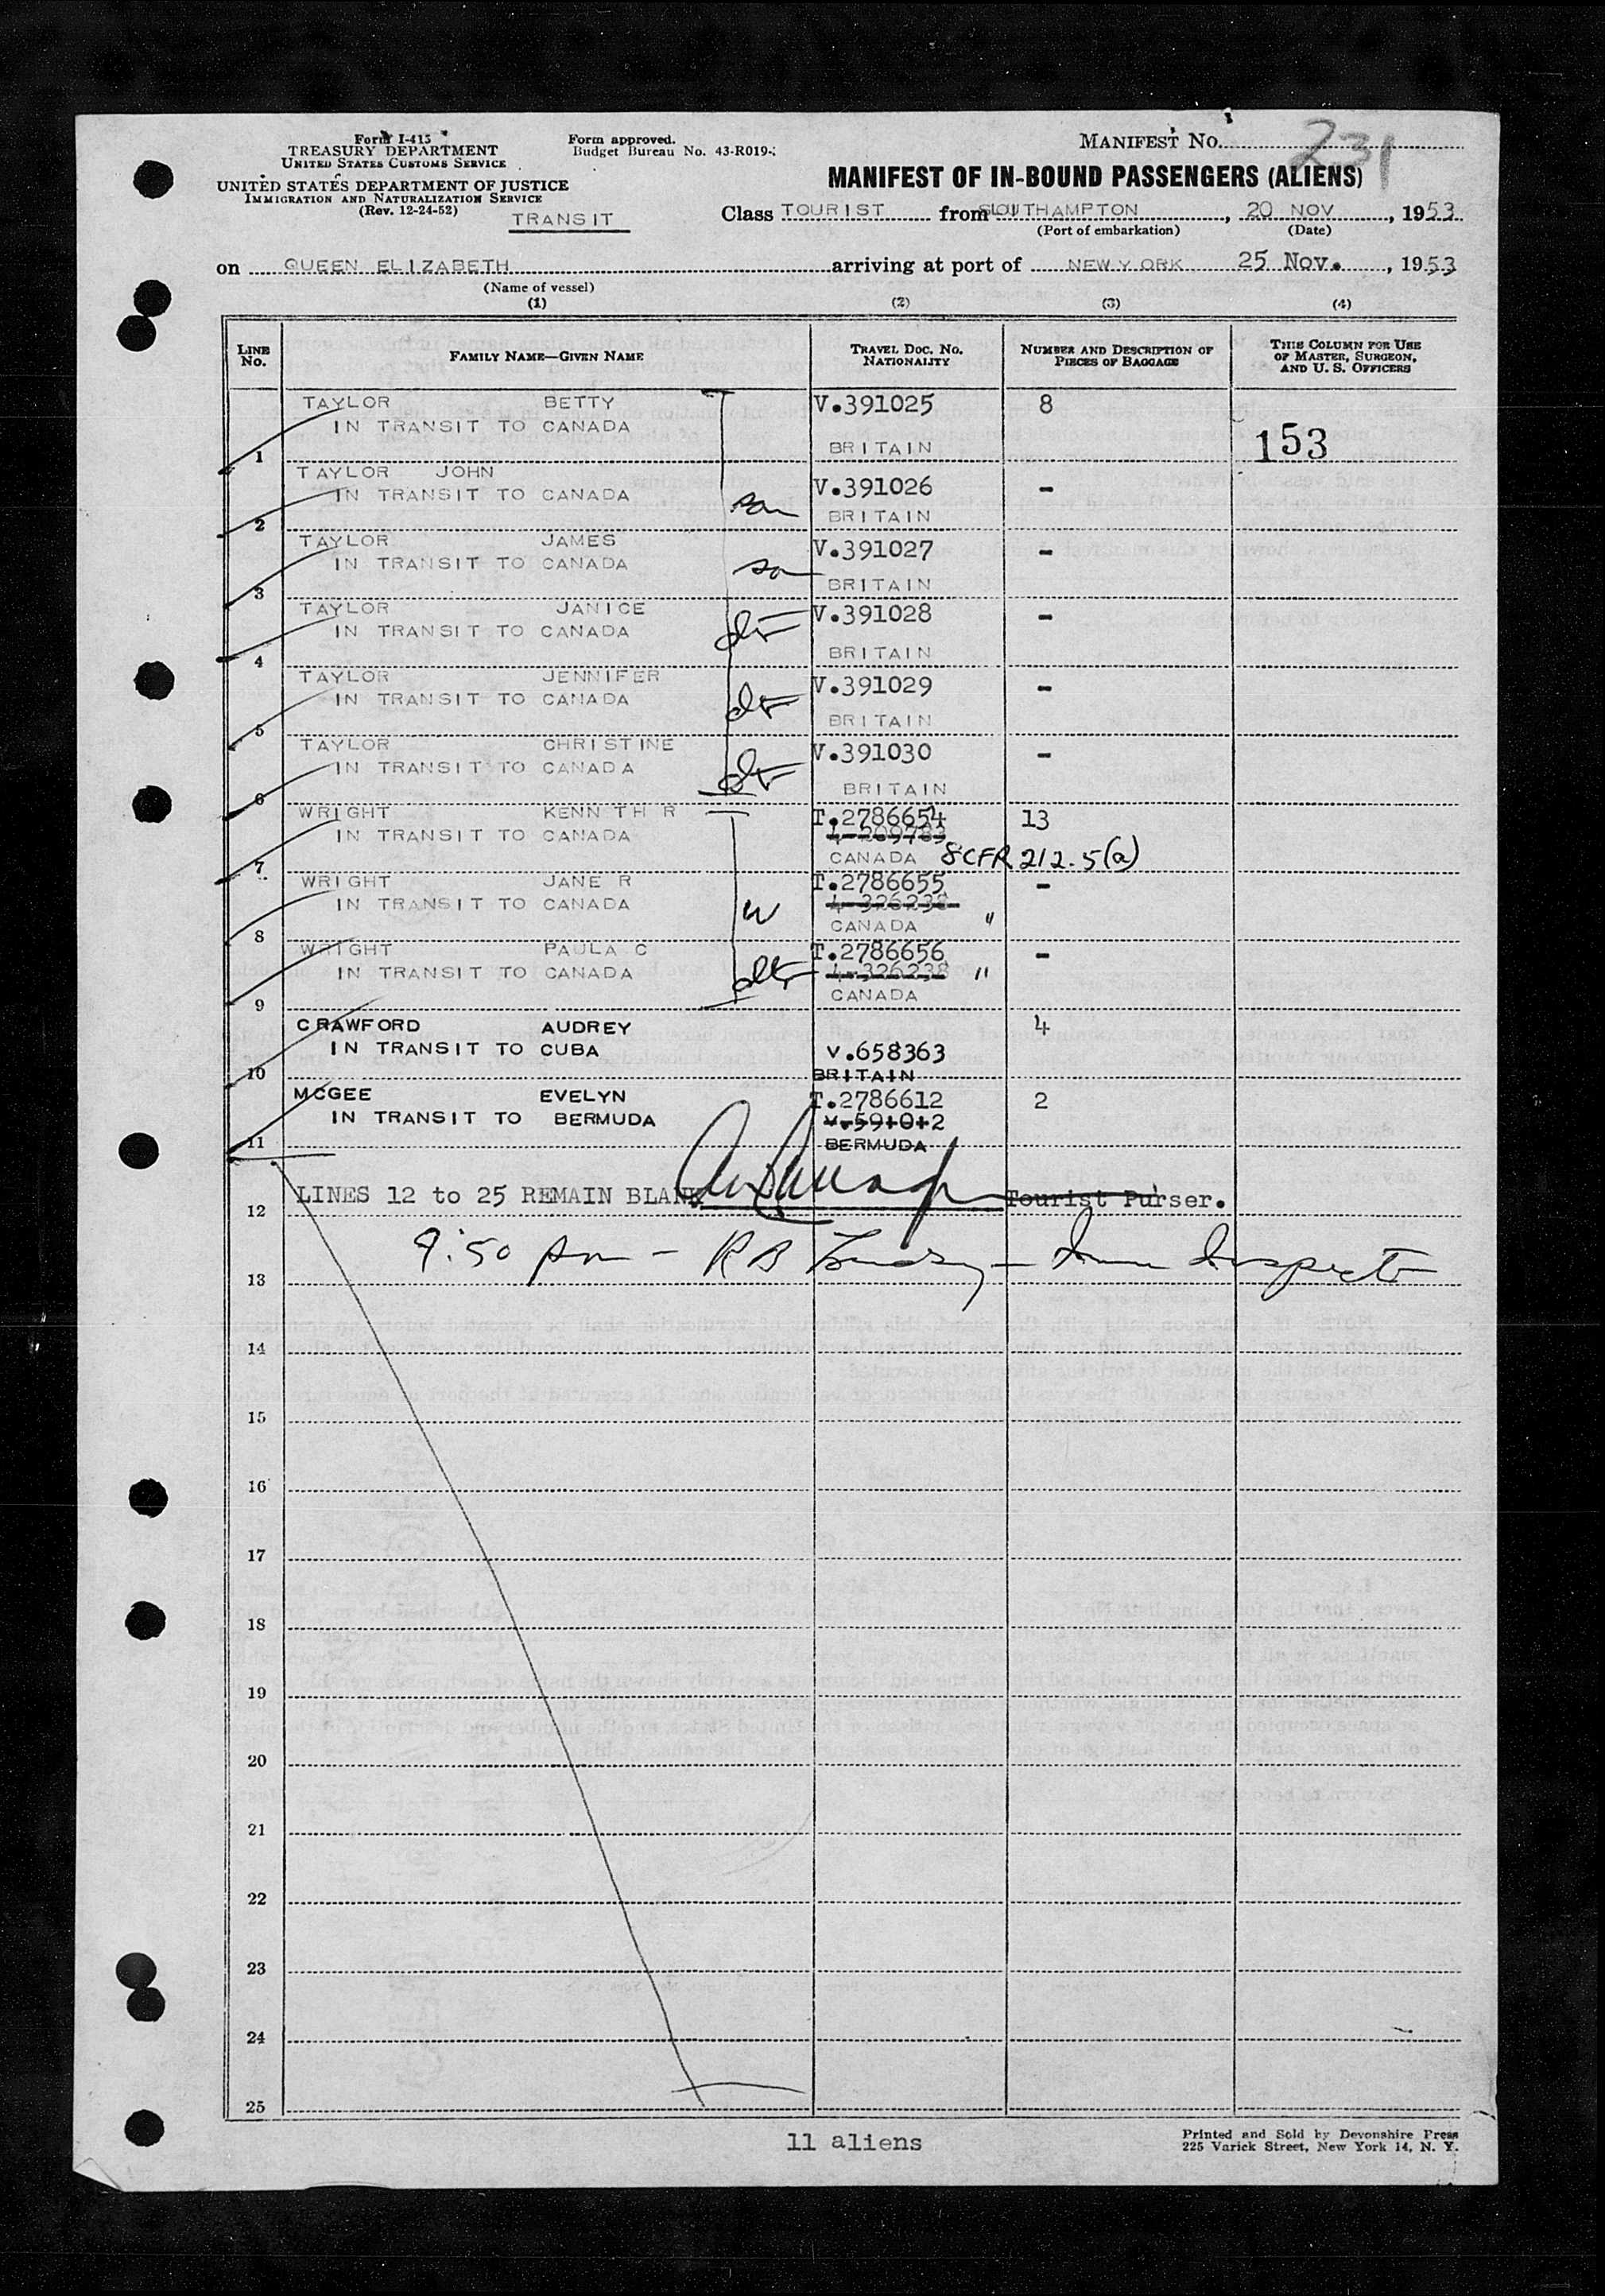 Form I-415
TREASURY DEPARTMENT
UNITED STATES CUSTOMS SERVICE
UNITED STATES DEPARTMENT OF JUSTICE
IMMIGRATION AND NATURALIZATION SERVICE
(Rev. 12-24-52)
TRANSIT
Form approved.
Budget Bureau No. 43-R019-
MANIFEST No. 231
MANIFEST OF IN-BOUND PASSENGERS (ALIENS)
Class TOURIST from SOUTHAMPTON, 20 NOV, 1953
(Port of embarkation) (Date)
on QUEEN ELIZABETH arriving at port of NEW YORK 25 Nov., 1953
(Name of vessel)
(1) (2) (3) (4)
LINE No. FAMILY NAME—GIVEN NAME TRAVEL DOC. NO. NATIONALITY NUMBER AND DESCRIPTION OF PIECES OF BAGGAGE THIS COLUMN FOR USE OF MASTER, SURGEON, AND U. S. OFFICERS
TAYLOR BETTY V.391025 8
IN TRANSIT TO CANADA
1 BRITAIN 153
TAYLOR JOHN V.391026 -
IN TRANSIT TO CANADA son
2 BRITAIN
TAYLOR JAMES V.391027 -
IN TRANSIT TO CANADA son
3 BRITAIN
TAYLOR JANICE V.391028 -
IN TRANSIT TO CANADA dtr
4 BRITAIN
TAYLOR JENNIFER V.391029 -
IN TRANSIT TO CANADA dtr
5 BRITAIN
TAYLOR CHRISTINE V.391030 -
IN TRANSIT TO CANADA dtr
6 BRITAIN
WRIGHT KENN TH R T.2786654 13
IN TRANSIT TO CANADA 4-209783
7 CANADA 8CFR 212.5(a)
WRIGHT JANE R T.2786655 -
IN TRANSIT TO CANADA W 4-326238
8 CANADA "
WRIGHT PAULA C T.2786656 -
IN TRANSIT TO CANADA dtr 4-326238 "
9 CANADA
CRAWFORD AUDREY 4
IN TRANSIT TO CUBA V.658363
10 BRITAIN
MCGEE EVELYN T.2786612 2
IN TRANSIT TO BERMUDA
11 BERMUDA
LINES 12 to 25 REMAIN BLANK Tourist Purser.
12
9:50 pm - R B - Imm Inspector
13
14
15
16
17
18
19
20
21
22
23
24
25
11 aliens
Printed and Sold by Devonshire Press
225 Varick Street, New York 14, N. Y.